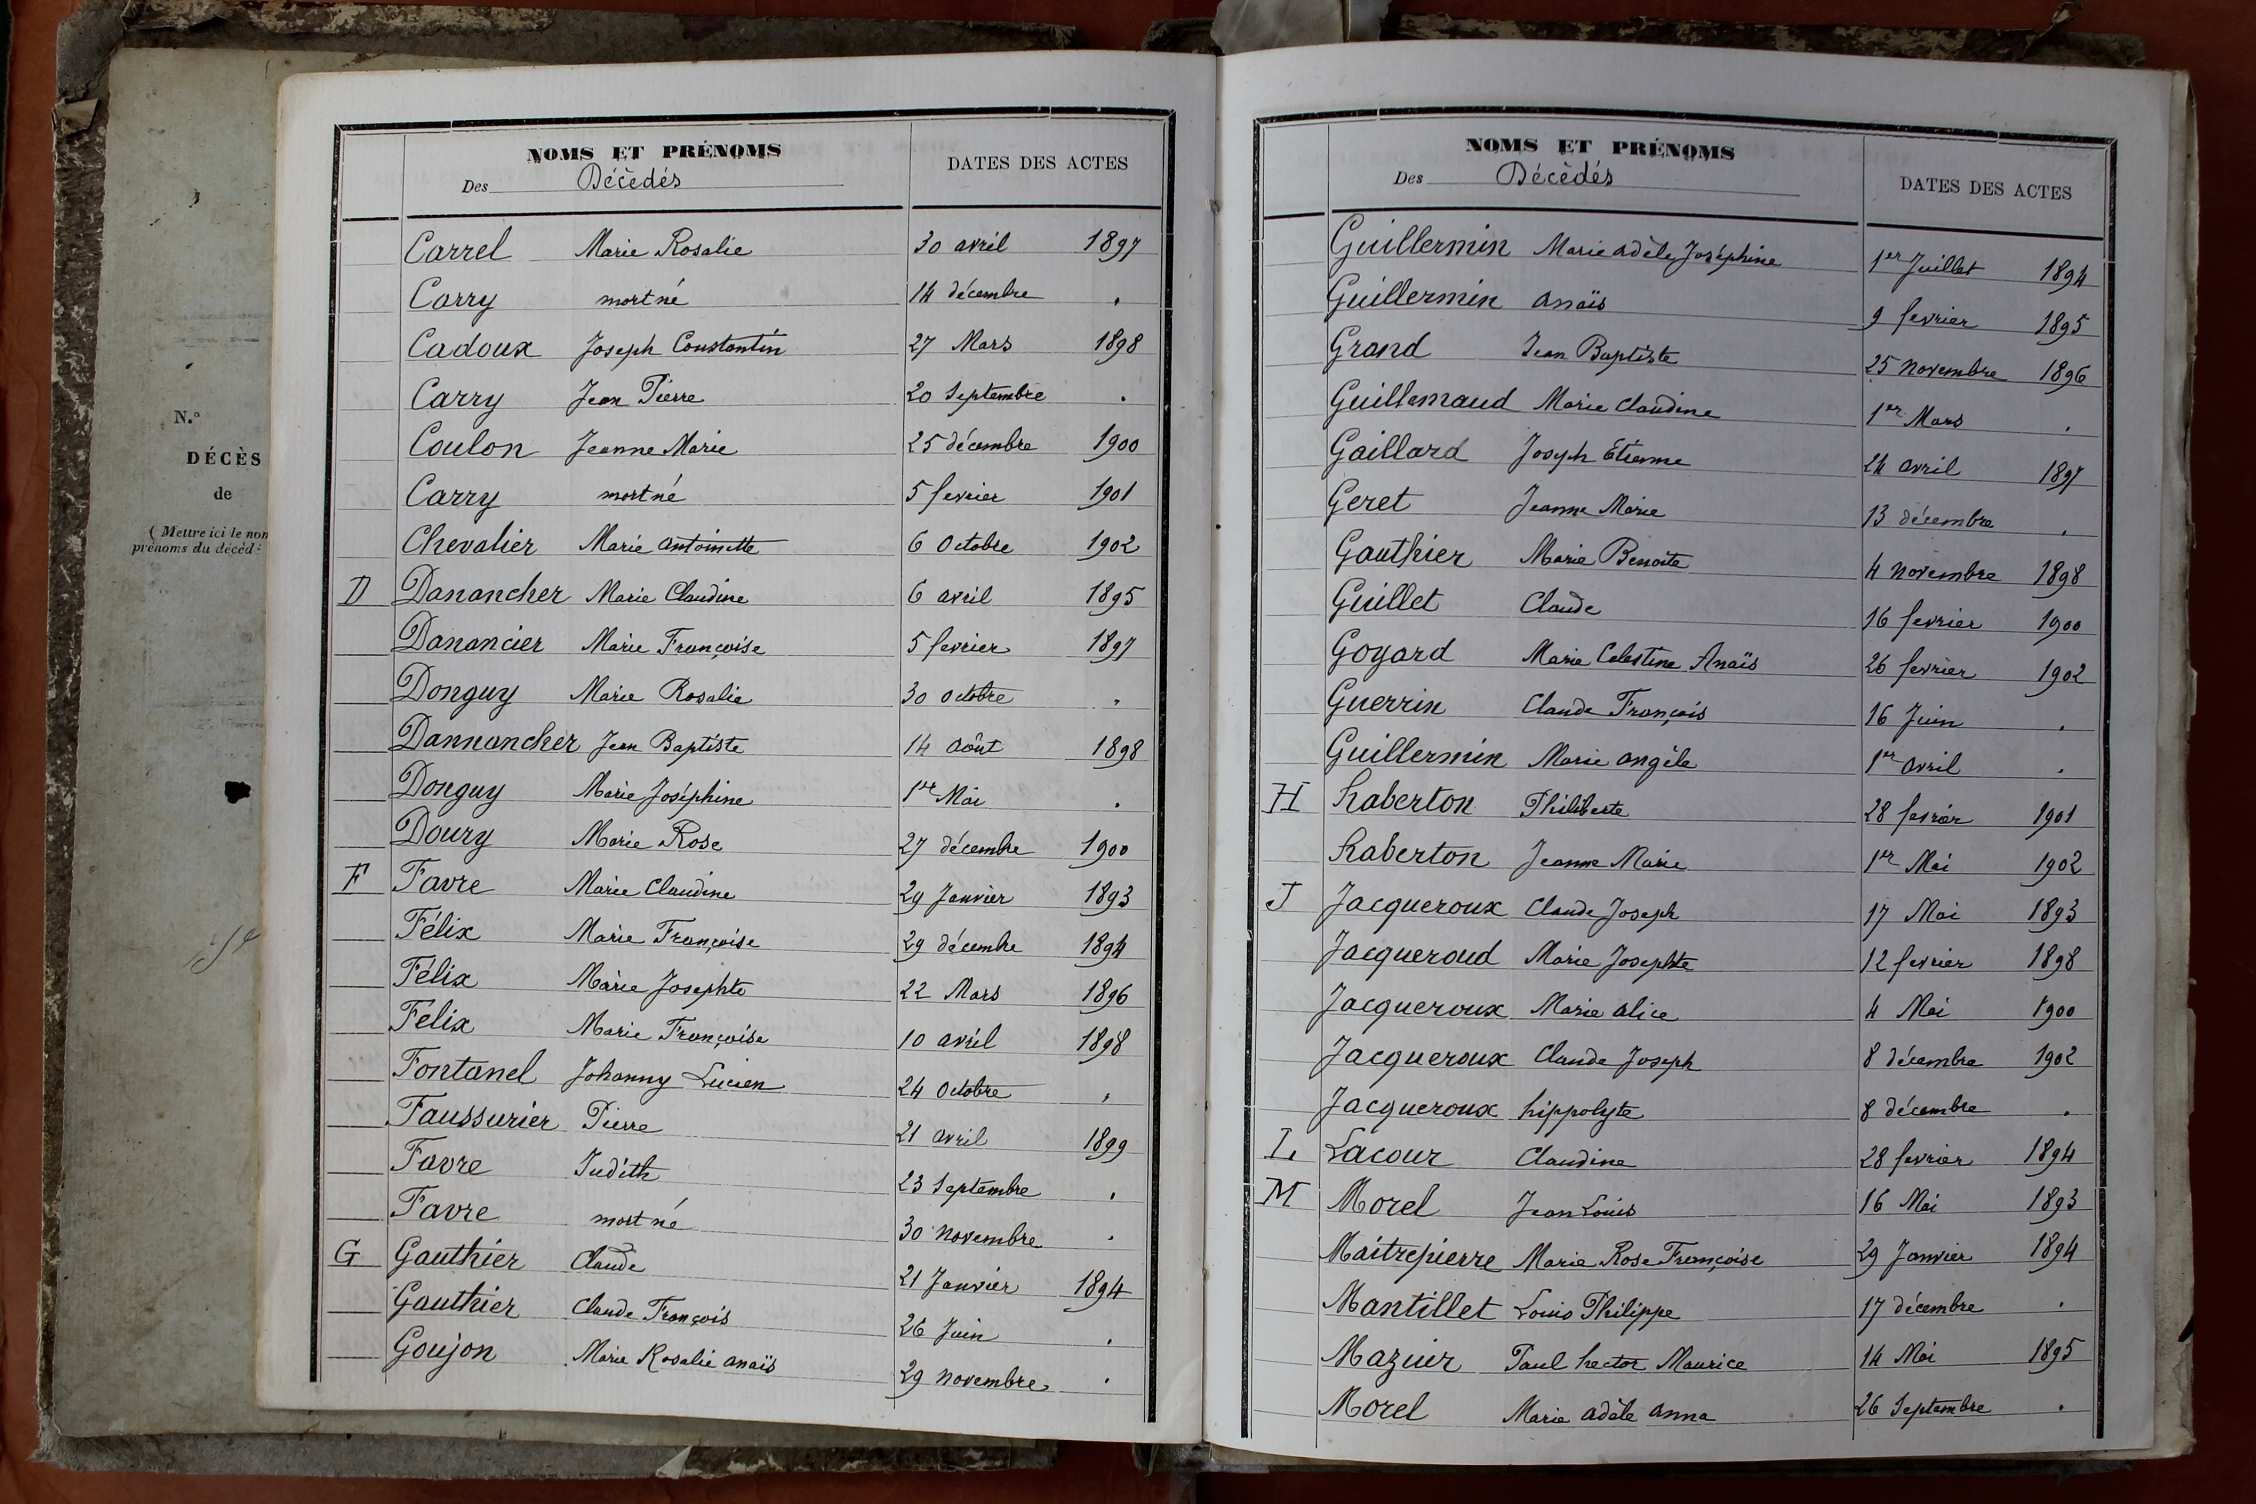 N.°
DÉCÈS
de
( Mettre ici le nom
prénoms du décéd
NOMS ET PRÉNOMS
Des Décédés
DATES DES ACTES
Carrel Marie Rosalie 30 avril 1897
Carry mort né 14 décembre .
Cadoux Joseph Constantin 27 Mars 1898
Carry Jean Pierre 20 Septembre .
Coulon Jeanne Marie 25 décembre 1900
Carry mort né 5 fevrier 1901
Chevalier Marie antoinette 6 Octobre 1902
D Danancher Marie Claudine 6 avril 1895
Danancier Marie Françoise 5 fevrier 1897
Donguy Marie Rosalie 30 octobre .
Dannancher Jean Baptiste 14 août 1898
Donguy Marie Joséphine 1er Mai .
Doury Marie Rose 27 décembre 1900
F Favre Marie Claudine 29 Janvier 1893
Félix Marie Françoise 29 décembre 1894
Félix Marie Josephte 22 Mars 1896
Felix Marie Françoise 10 avril 1898
Fontanel Johanny Lucien 24 Octobre .
Faussurier Pierre 21 avril 1899
Favre Judith 23 Septembre .
Favre mort né 30 novembre .
G Gauthier Claude 21 Janvier 1894
Gauthier Claude François 26 Juin .
Goujon Marie Rosalie anaïs 29 novembre .
NOMS ET PRÉNOMS
Des Décédés
DATES DES ACTES
Guillermin Marie adèle Joséphine 1er Juillet 1894
Guillermin anaïs 9 fevrier 1895
Grand Jean Baptiste 25 novembre 1896
Guillemaud Marie Claudine 1er Mars .
Gaillard Joseph Etienne 24 avril 1897
Geret Jeanne Marie 13 décembre .
Gauthier Marie Benoite 4 novembre 1898
Guillet Claude 16 fevrier 1900
Goyard Marie Celestine Anaïs 26 fevrier 1902
Guerrin Claude François 16 Juin .
Guillermin Marie angèle 1er avril .
H haberton Philiberte 28 fevrier 1901
haberton Jeanne Marie 1er Mai 1902
J Jacqueroux Claude Joseph 17 Mai 1893
Jacqueroud Marie Josephte 12 fevrier 1898
Jacqueroux Marie alice 4 Mai 1900
Jacqueroux Claude Joseph 8 décembre 1902
Jacqueroux hippolyte 8 décembre .
L Lacour Claudine 28 fevrier 1894
M Morel Jean Louis 16 Mai 1893
Maitrepierre Marie Rose Françoise 29 Janvier 1894
Mantillet Louis Philippe 17 décembre .
Mazuir Paul hector Maurice 14 Mai 1895
Morel Marie adèle anna 26 Septembre .